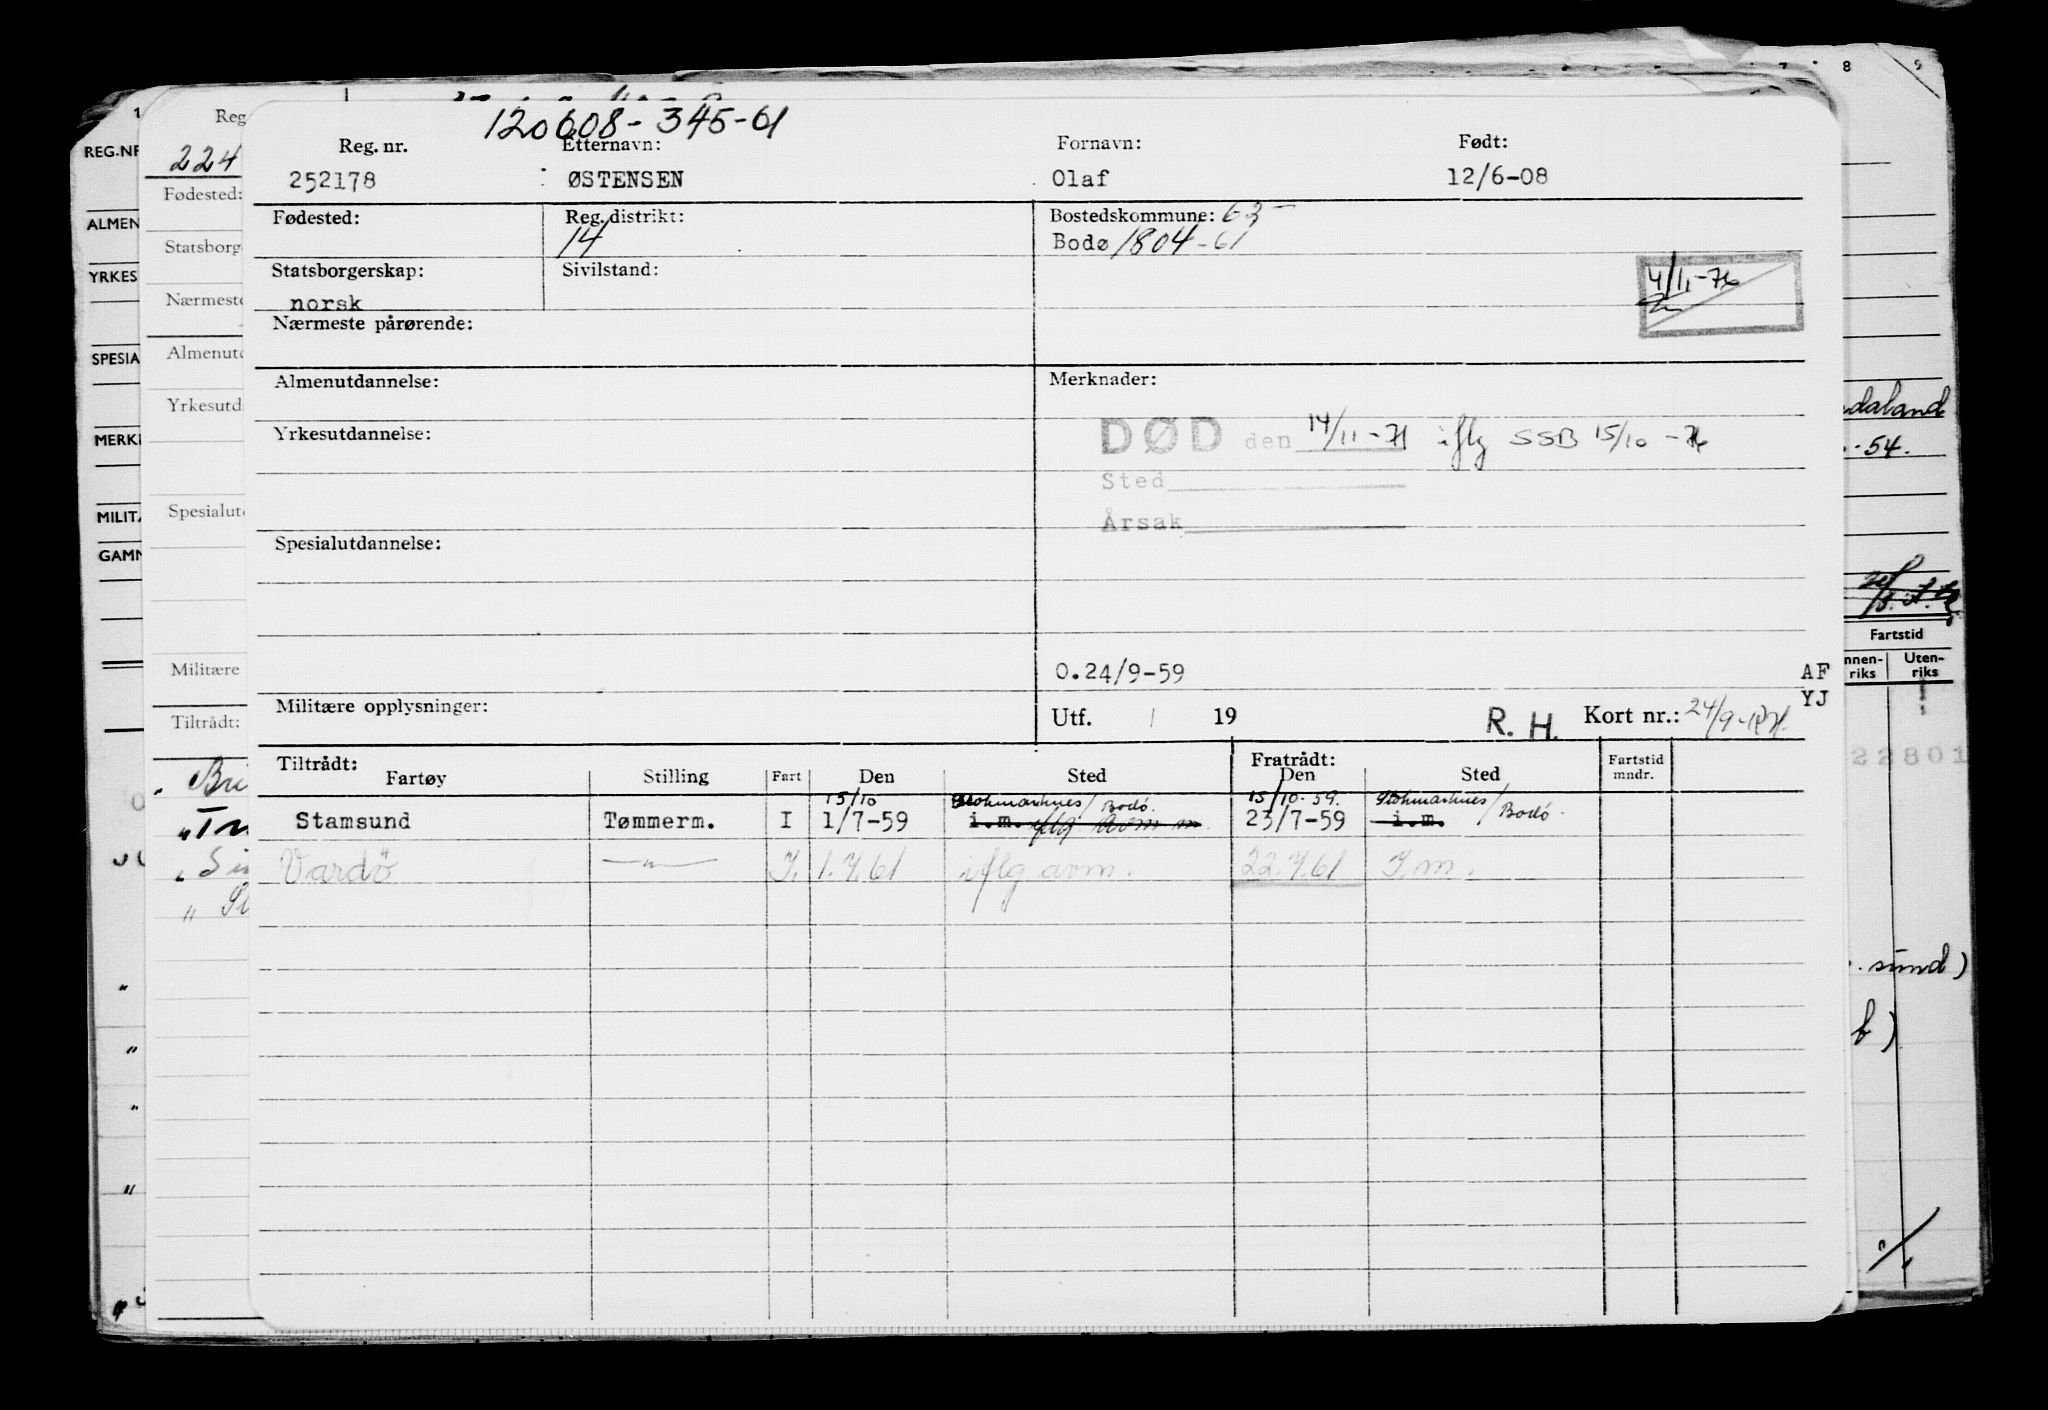 120608-345-61
Reg. nr. Etternavn: Fornavn: Født:
252178 ØSTENSEN Olaf 12/6-08
Fødested: Reg. distrikt: Bostedskommune: 63-
14 Bodø 1804-61
Statsborgerskap: Sivilstand:
norsk
4/11-76
Nærmeste pårørende:
Almenutdannelse: Merknader:
Yrkesutdannelse: DØD den 14/11-71 iflg SSB 15/10-76
Sted
Årsak
Spesialutdannelse:
0.24/9-59 AF
YJ
Militære opplysninger: Utf. / 19 R. H. Kort nr.: 24/9-RH.
Tiltrådt: Fratrådt:
Fartøy Stilling Fart Den Sted Den Sted Fartstid mndr.
15/10 Stokmarknes/Bodø. 15/10-59. Stokmarknes/Bodø.
Stamsund Tømmerm. I 1/7-59 i.m. iflg avm 23/7-59 i.m.
Vardø —"— I. 1.7.61 iflg avm. 22.7.61 I.m.
Reg
224
Fødested:
Statsborg
Nærmeste
Almenutd
Yrkesutd
Spesialut
Militære
Tiltrådt:
1
REG.NR
ALMEN
YRKES
SPESIA
MERK
MILIT
GAMN
7 8 9
daland
-54.
Fartstid
nnen-riks Uten-riks
22801
sund)
b)